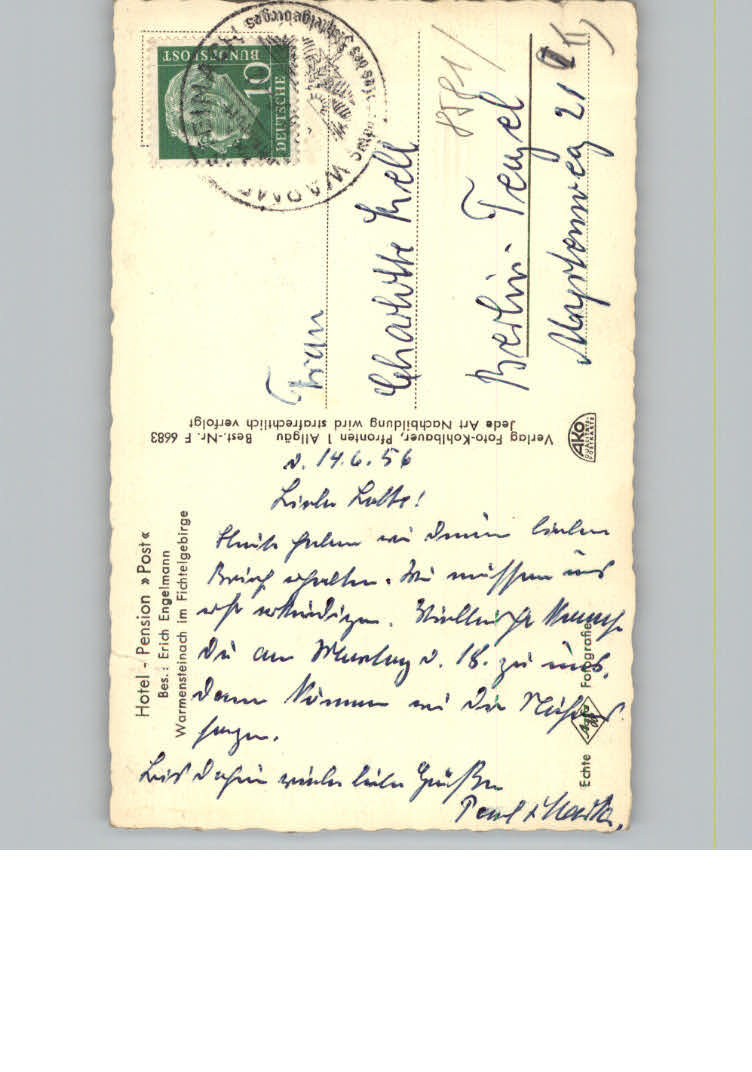 Hotel - Pension »Post«
Bes.: Erich Engelmann
Warmensteinach im Fichtelgebirge
d. 14.6.56
Liebe Lotte!
Heute haben wir Deinen lieben
Brief erhalten. Wir müssen uns
erst erkundigen. Vielleicht kommst
Du am Montag d. 18. zu uns,
dann können wir Dir Näheres
sagen.
Bis dahin viele liebe Grüße
Paul &
Verlag Foto-Kohlbauer, Pfronten 1 Allgäu Best.-Nr. F 6683
Jede Art Nachbildung wird strafrechtlich verfolgt
AKO
Echte Agfa Fotografie
DEUTSCHE
BUNDESPOST
10
des Fichtelgebirges
Frau
Charlotte Krell
Berlin-Tegel
Myrtenweg 21